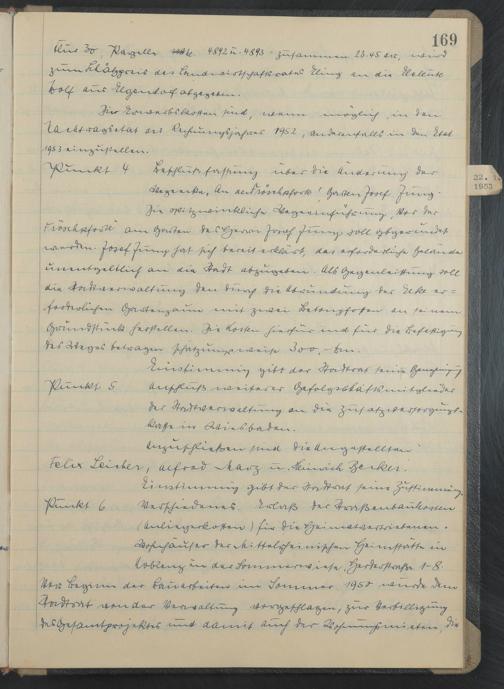 169
Flur 30, Parzelle 4892 u. 4893 zusammen 23.45 ar, wird
zum Schätzpreis des Landwirtschaftsrates Eling an die Eheleute
Wolf aus Elgendorf abgegeben.
Die Erwerbskosten sind, wenn möglich, in den
Nachtragsetat des Rechnungsjahres 1952, anderenfalls in den Etat
1953 einzustellen.
22.
1953
Punkt 4 Beschlußfassung über die Änderung der
Wegeecke, An der Fröschpfort! Garten Josef Jung.
Die spitzwinklische Wegeeinführung, Vor der
Fröschpfort am Garten des Herrn Josef Jung soll abgerundet
werden. Josef Jung hat sich bereit erklärt, das erforderliche Gelände
unentgeltlich an die Stadt abzugeben. Als Gegenleistung soll
die Stadtverwaltung den durch die Abrundung der Ecke er=
forderlichen Gartenzaun mit zwei Betonpfosten an seinem
Grundstück herstellen. Die Kosten hierfür und für die Befestigung
des Weges betragen schätzungsweise 300,- Dm.
Einstimmig gibt der Stadtrat seine Genehmigung
Punkt 5 Anschluß weiterer Gefolgschaftsmitglieder
der Stadtverwaltung an die Zusatzversorgungs-
kasse in Wiesbaden.
Anzuschließen sind die Angestellten
Felix Leicher, Alfred Marz u. Heinrich Becker.
Einstimmig gibt der Stadtrat seine Zustimmung.
Punkt 6 Verschiedenes. Erlaß der Straßenbaukosten
(Anliegerkosten) für die Heimatvertriebenen-
Wohnhäuser der Mittelrheinischen Heimstätte in
Koblenz in der Sommerwiese, Herderstraße 1-8.
Vor Beginn der Bauarbeiten im Sommer 1950 wurde dem
Stadtrat von der Verwaltung vorgeschlagen, zur Verbilligung
des Gesamtprojektes und damit auch der Wohnungsmieten, die